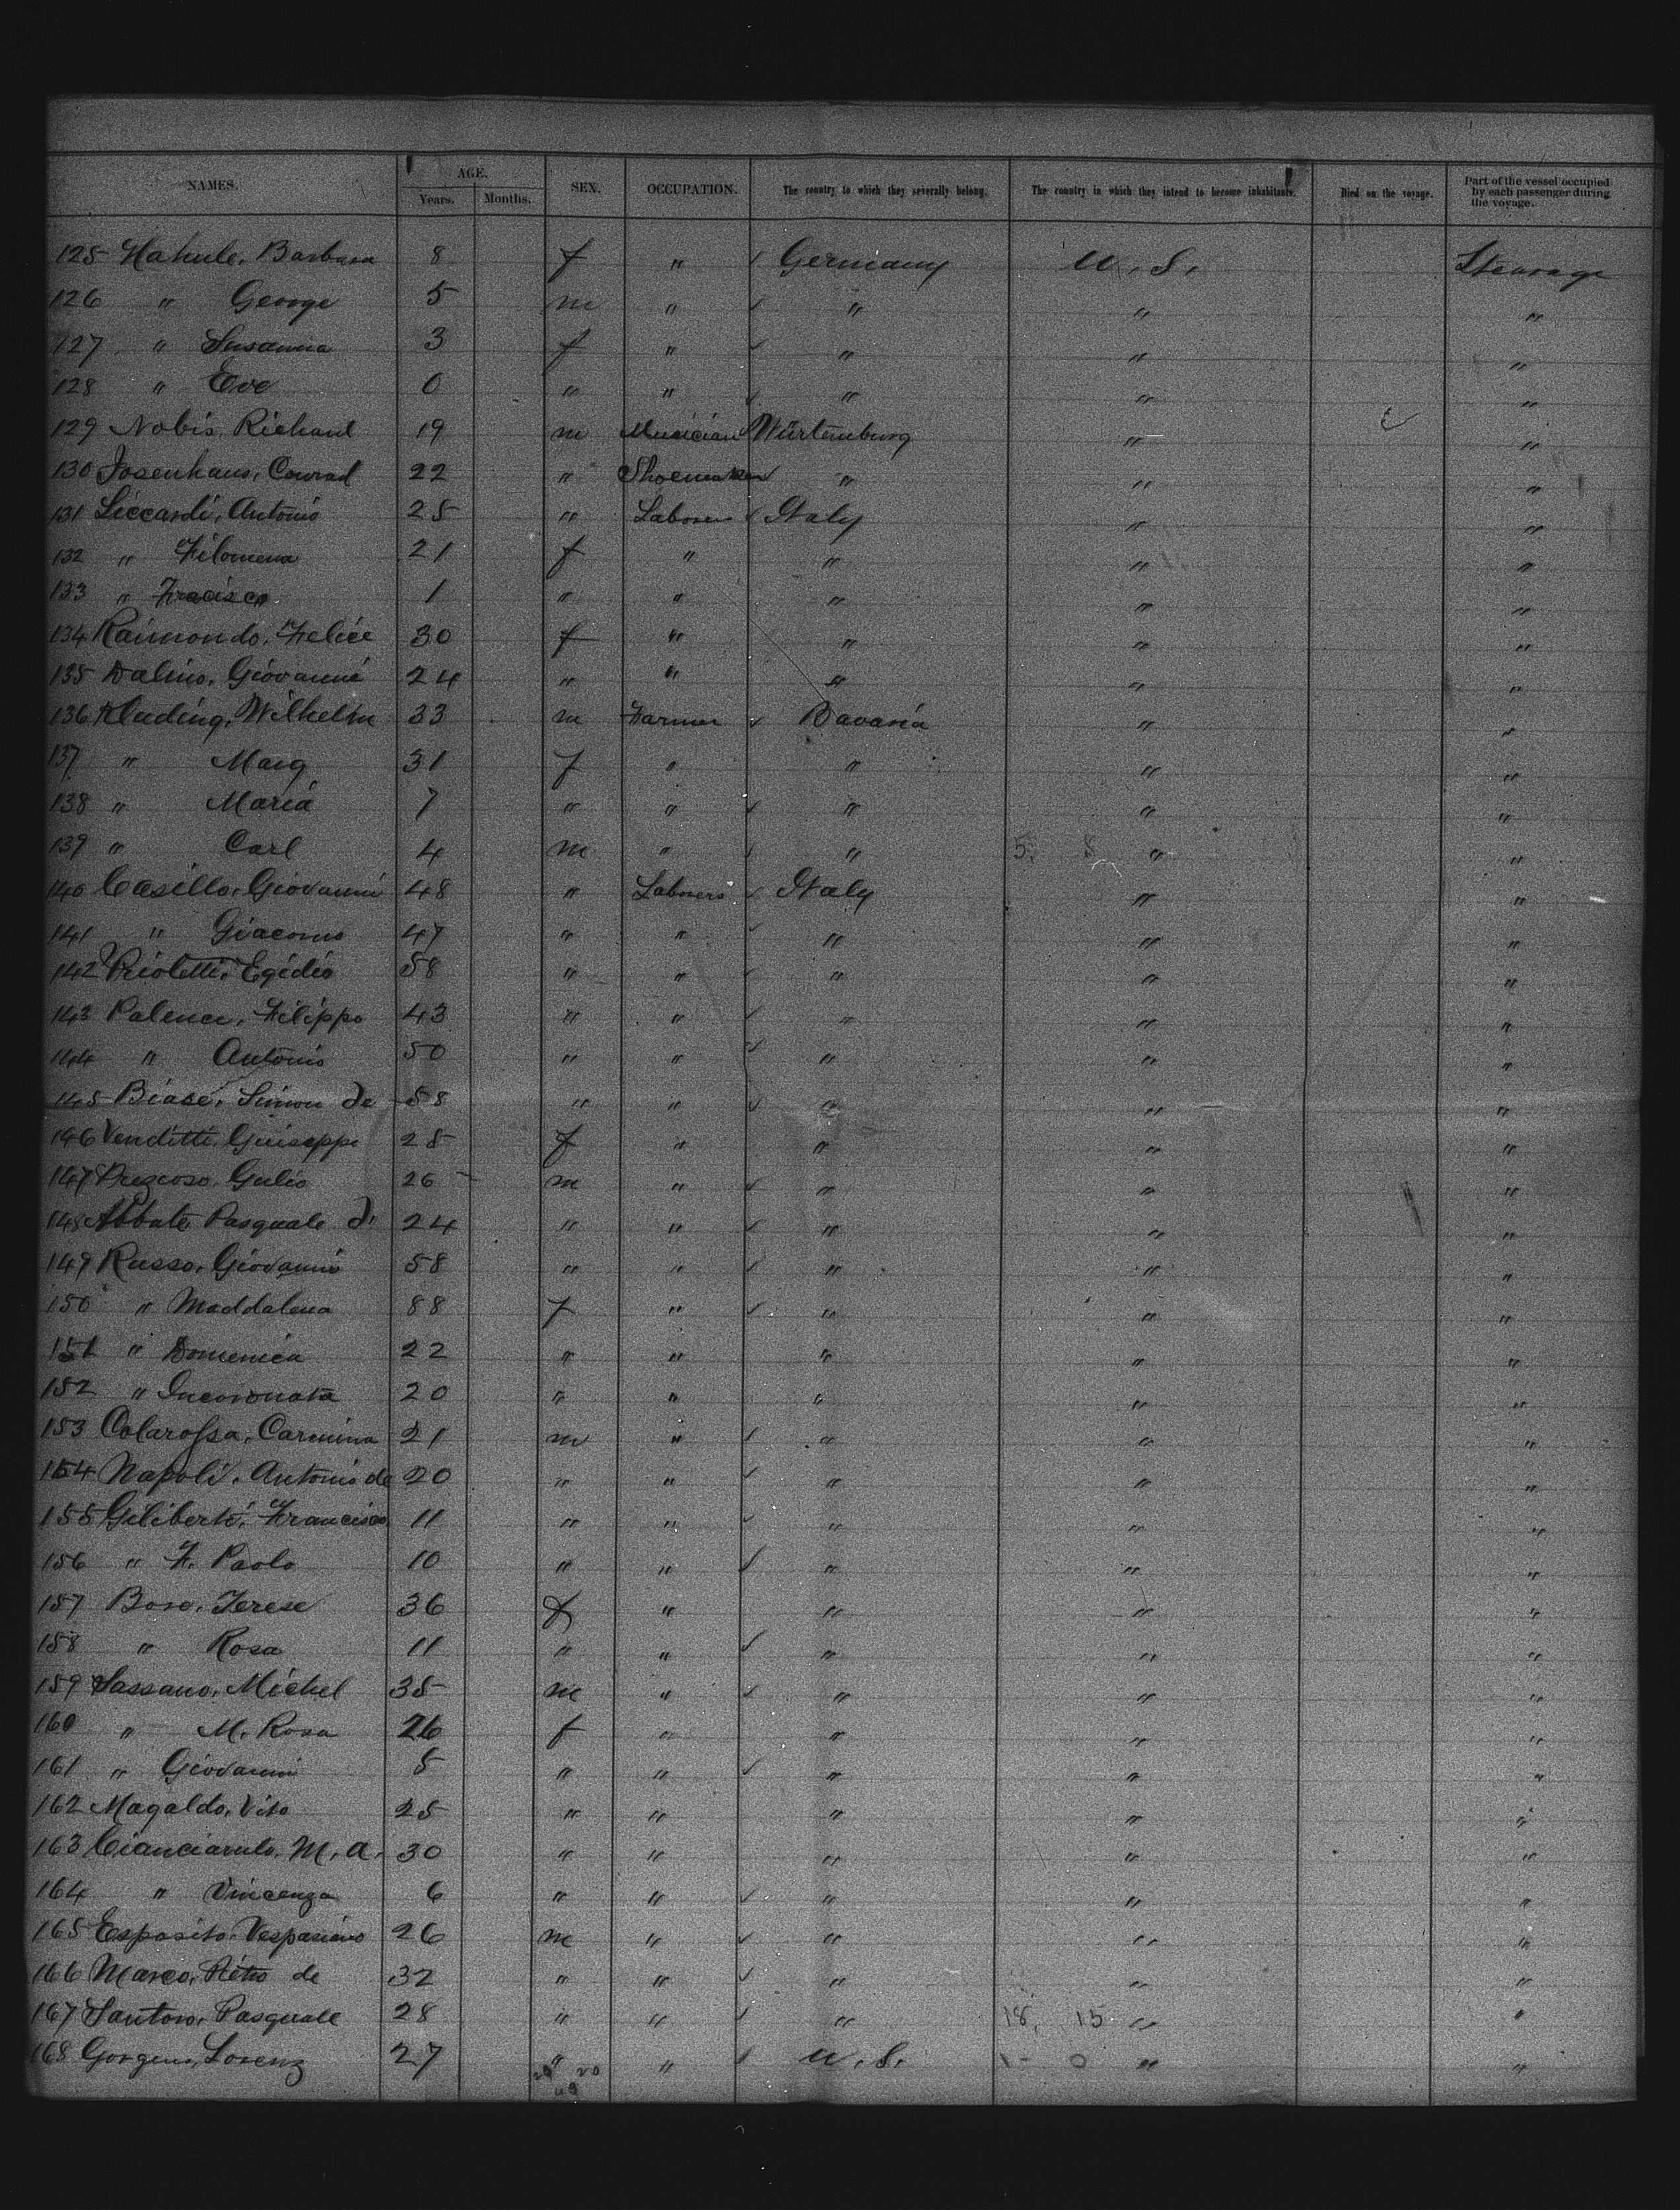 NAMES. AGE. Years. Months. SEX. OCCUPATION. The country to which they severally belong. The country in which they intend to become inhabitants. Died on the voyage. Part of the vessel occupied by each passenger during the voyage.
125 Hahule, Barbara 8 f " Germany U. S. Steerage
126 " George 5 m " " " "
127 " Susanna 3 f " " " "
128 " Eve 0 " " " " "
129 Nobis Richard 19 m Musician Würtemburg " "
130 Josenhaus, Conrad 22 " Shoemaker " " "
131 Liccardi, Antonio 25 " Laborer Italy " "
132 " Filomena 21 f " " " "
133 " Fracisco 1 " " " " "
134 Raimondo, Felice 30 f " " " "
135 Dalino, Giovanni 24 " " " " "
136 Kluding, Wilhelm 33 m Farmer Bavaria " "
137 " Marg 31 f " " " "
138 " Maria 7 " " " " "
139 " Carl 4 m " " 5. 8 " "
140 Casillo, Giovanni 48 " Laborers Italy " "
141 " Giacomo 47 " " " " "
142 Prioletti, Egidio 58 " " " " "
143 Palence, Filippo 43 " " " " "
144 " Antonio 50 " " " " "
145 Biase, Simon de 58 " " " " "
146 Venditti Guiseppe 25 f " " " "
147 Prezcoso Gulio 26 m " " " "
148 Abbate Pasquale di 24 " " " " "
149 Russo, Giovanni 58 " " " " "
150 " Maddalena 88 f " " " "
151 " Domenica 22 " " " " "
152 " Incoronata 20 " " " " "
153 Colarossa, Carmina 21 m " " " "
154 Napoli, Antonio de 20 " " " " "
155 Giliberti, Francisco 11 " " " " "
156 " F. Paolo 10 " " " " "
157 Bove, Terese 36 f " " " "
158 " Rosa 11 " " " " "
159 Sassano, Michel 35 m " " " "
160 " M. Rosa 26 f " " " "
161 " Giovanni 5 " " " " "
162 Magaldo, Vito 25 " " " " "
163 Cianciarulo, M. A. 30 " " " " "
164 " Vincenza 6 " " " " "
165 Esposito, Vespasiano 26 m " " " "
166 Marco, Pietro de 32 " " " " "
167 Santoro, Pasquale 28 " " " 18. 15 " "
168 Gorgens, Lorenz 27 " " U. S. 1 - 0 " "
29 20
49